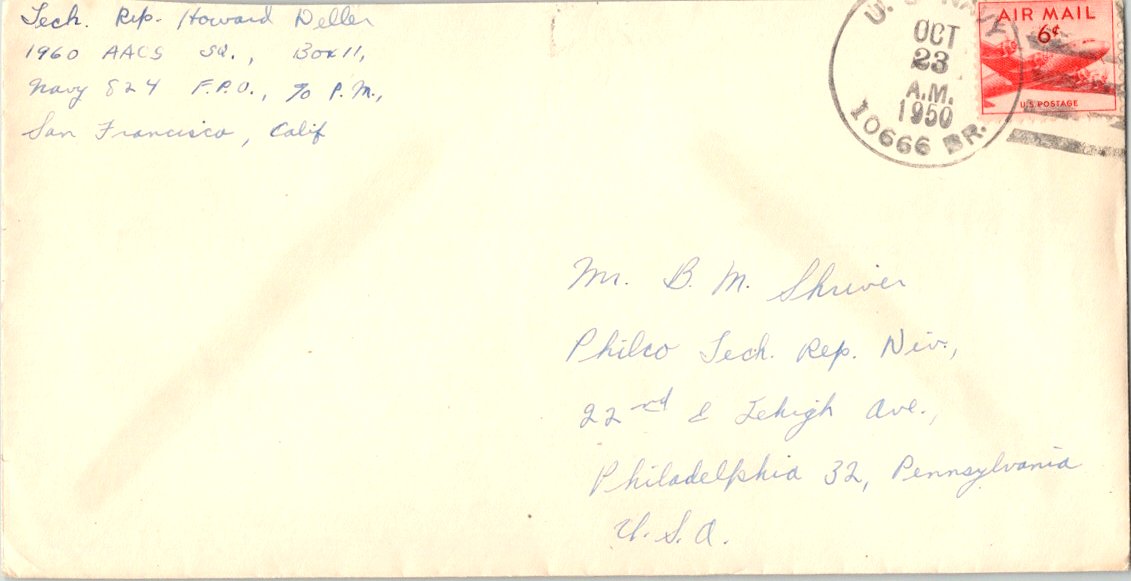 Tech. Rep. Howard Deller
1960 AACS SQ., Box 11,
Navy 824 F.P.O., % P.M.,
San Francisco, Calif
U. S. NAVY
OCT
23
A.M.
1950
10666 BR.
AIR MAIL
6¢
U.S. POSTAGE
Mr. B. M. Shriver
Philco Tech. Rep. Div.,
22nd & Lehigh Ave.,
Philadelphia 32, Pennsylvania
U.S.A.